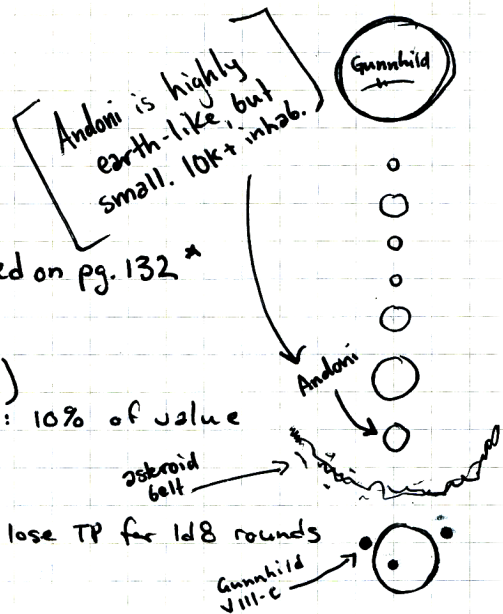 Gunnhild
Andoni is highly
earth-like, but
small. 10K+ inhab.
ed on pg. 132 *
Andoni
)
: 10% of value
asteroid
belt
lose TP for 1d8 rounds
Gunnhild
VIII-C